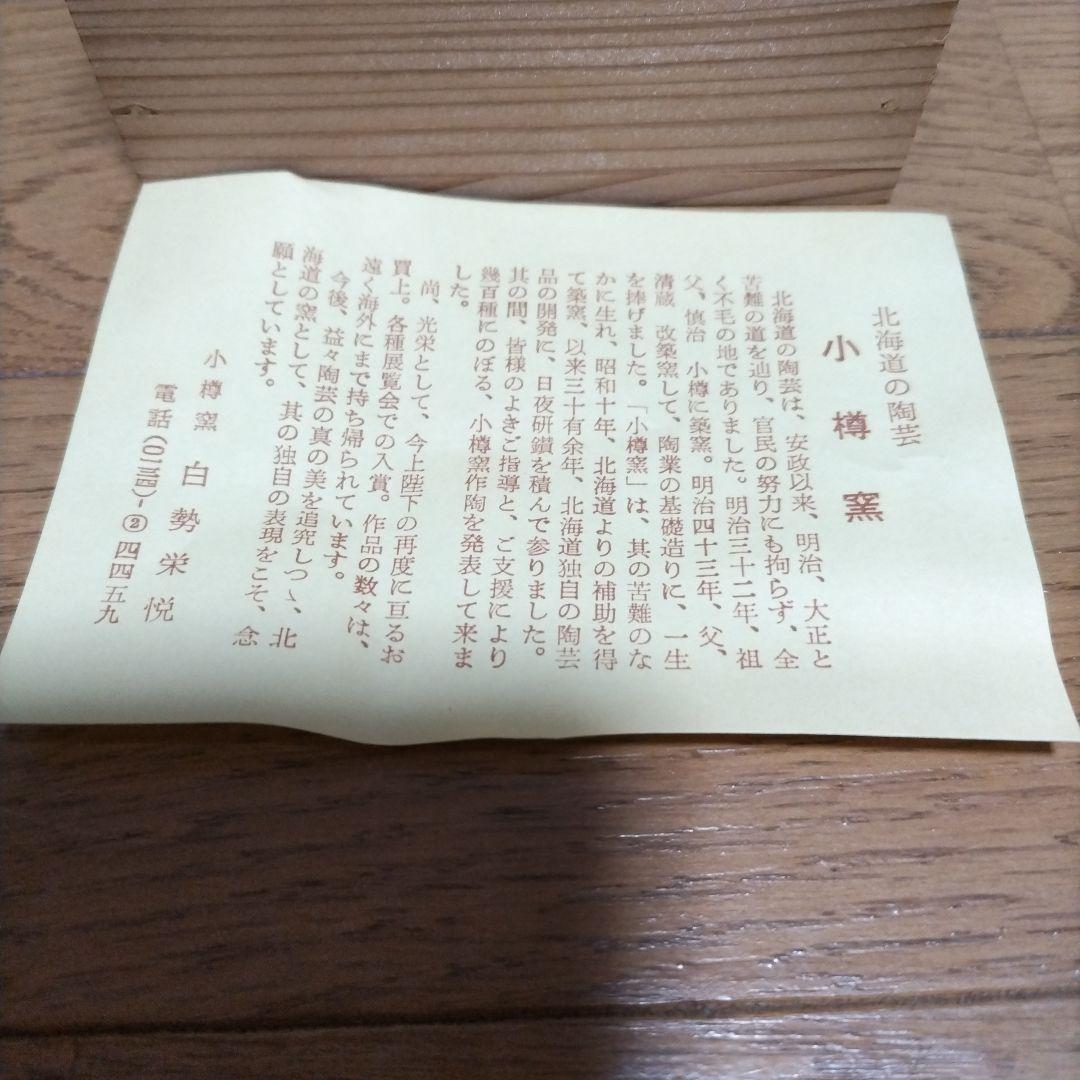 北海道の陶芸
小樽窯
北海道の陶芸は、安政以来、明治、大正と
苦難の道を辿り、官民の努力にも拘らず、全
く不毛の地でありました。明治三十二年、祖
父、慎治 小樽に築窯。明治四十三年、父、
清蔵 改築窯して、陶業の基礎造りに、一生
を捧げました。「小樽窯」は、其の苦難のな
かに生れ、昭和十年、北海道よりの補助を得
て築窯、以来三十有余年、北海道独自の陶芸
品の開発に、日夜研鑚を積んで参りました。
其の間、皆様のよきご指導と、ご支援により
幾百種にのぼる、小樽窯作陶を発表して来ま
した。
尚、光栄として、今上陛下の再度に亘るお
買上。各種展覧会での入賞。作品の数々は、
遠く海外にまで持ち帰られています。
今後、益々陶芸の真の美を追究しつゝ、北
海道の窯として、其の独自の表現をこそ、念
願としています。
小樽窯 白勢栄悦
電話(〇一三四)-②四四五九